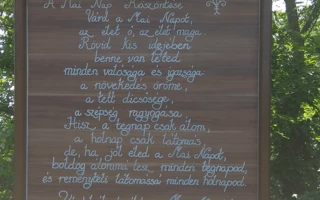 A Mai Nap Köszöntése
Várd a Mai Napot,
az élet ő, az élet maga.
Rövid kis idejében
benne van léted
minden valósága és igazsága:
a növekedés öröme,
a tett dicsősége,
a szépség ragyogása.
Hisz a tegnap csak álom,
a holnap csak látomás,
de, ha jól éled a Mai Napot,
boldog álommá lesz minden tegnapod,
és reményteli látomássá minden holnapod.